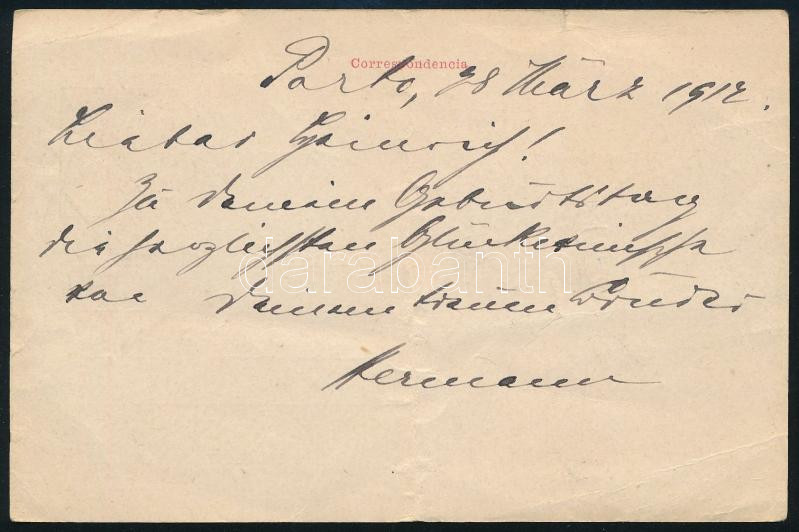 Correspondencia
Porto, 28 März 1912.
Lieber Heinrich!
Zu deinem Geburtstag
die herzlichsten Glückwünsche
von deinem treuen Bruder
darabanth
Hermann